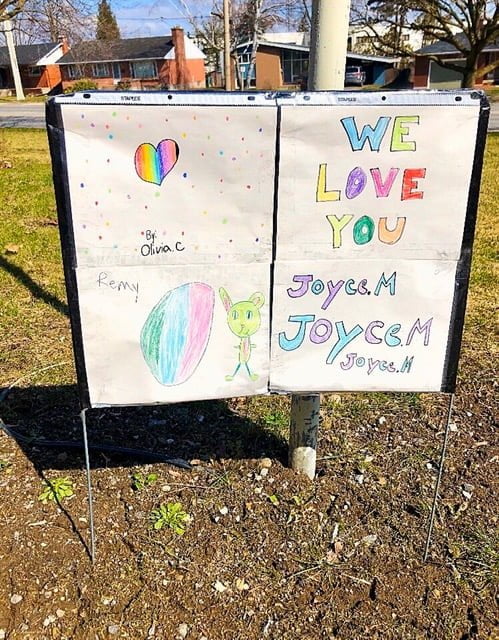 STAPLES
STAPLES
By:
Olivia.C
WE
LOVE
YOU
Remy
Joyce.M
JOYCE.M
Joyce.M